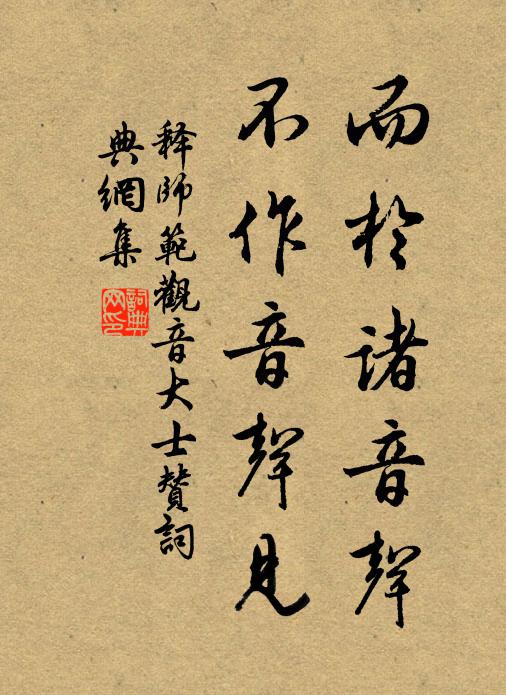 而於諸音聲
不作音聲見
释師範觀音大士賛詞
典網集
詞典网印